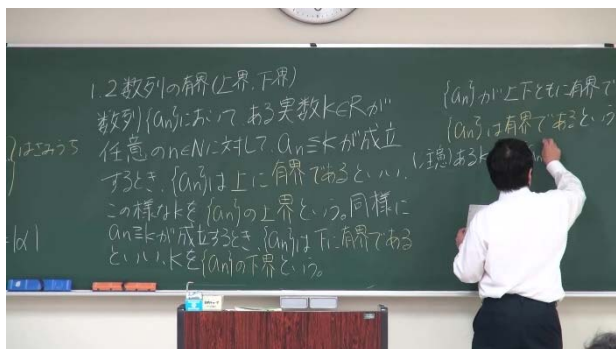 1.2 数列の有界(上界、下界)
数列{an}において、ある実数k∈Rが
任意のn∈Nに対して、an≦kが成立
するとき、{an}は上に有界であるといい、
この様なkを{an}の上界という。同様に
an≧kが成立するとき、{an}は下に有界である
といい、kを{an}の下界という。
{an}が上下ともに有界で
{an}は有界であるという
(注意)あるk
はさみうち
=|α|